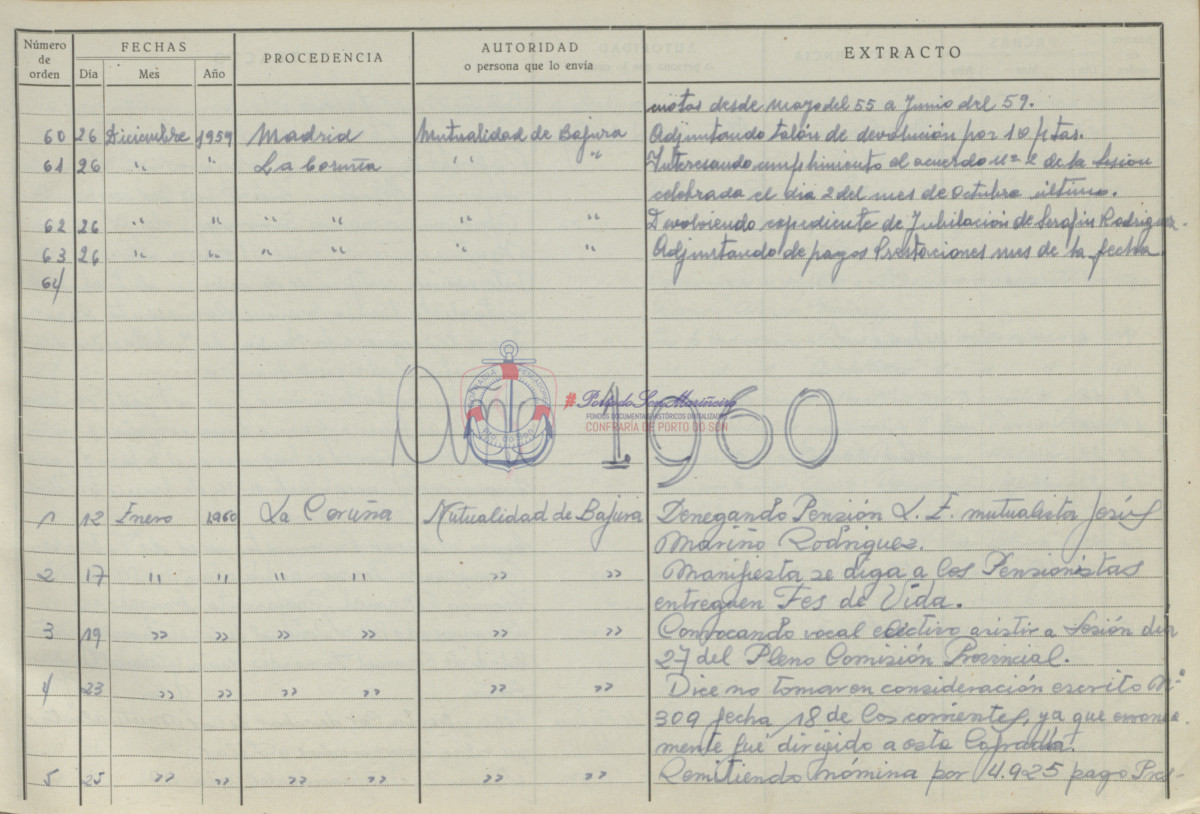 Número de orden FECHAS PROCEDENCIA AUTORIDAD o persona que lo envía EXTRACTO
Día Mes Año
desde mayo del 55 a Junio del 59.
60 26 Diciembre 1959 Madrid Mutualidad de Bajura Adjuntando talón de devolución por 10 ptas.
61 26 " " La Coruña " " Interesando cumplimiento al acuerdo nº 2 de la sesión
celebrada el día 2 del mes de octubre último.
62 26 " " " " " " Devolviendo expediente de Jubilación de Serafín Rodriguez.
63 26 " " " " " " Adjuntando de pagos Prestaciones mes de la fecha
64
Año 1960
CONFRARÍA PESCADORES
PTO. DO SON
#Porto do Son Mariñeiro
FONDOS DOCUMENTAIS HISTÓRICOS DIGITALIZADOS
CONFRARÍA DE PORTO DO SON
1 12 Enero 1960 La Coruña Mutualidad de Bajura Denegando Pensión L. E. mutualista Jesús
Mariño Rodriguez.
2 17 " " " " " " Manifiesta se diga a los Pensionistas
entreguen Fes de Vida.
3 19 " " " " " " Convocando vocal electivo asistir a Sesión día
27 del Pleno Comisión Provincial.
4 23 " " " " " " Dice no tomar en consideración escrito Nº
309 fecha 18 de los corrientes, ya que erronea-
mente fué dirigido a esta Cofradia.
5 25 " " " " " " Remitiendo nómina por 4.925 pago Pres-